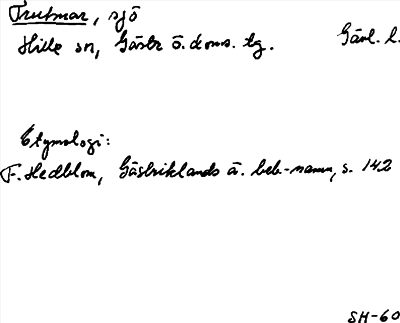 Trutmar, sjö
Hille sn, Gästr ö. doms. tg. Gävl. l.
Etymologi:
F. Hedblom, Gästriklands ä. beb-namn, s. 142
SH-60